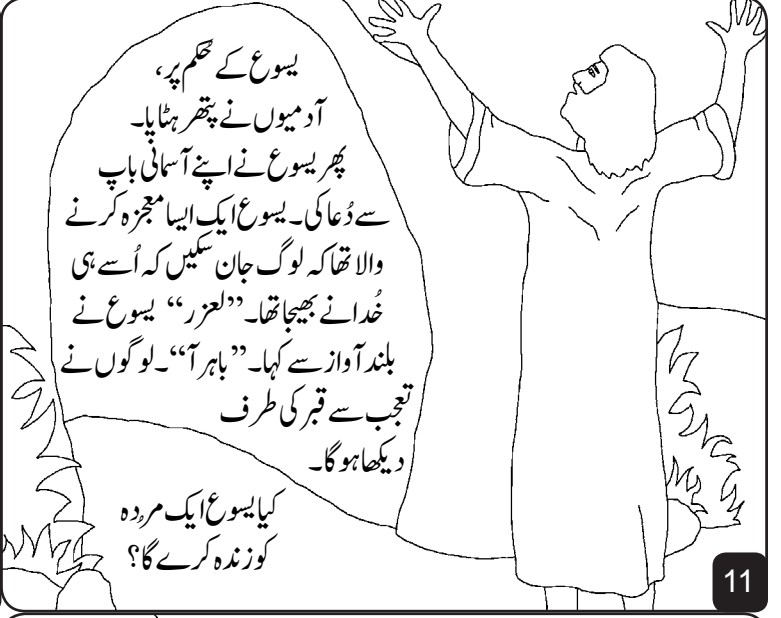 یسوع کے حُکم پر،
آدمیوں نے پتھر ہٹایا۔
پھر یسوع نے اپنے آسمانی باپ
سے دُعا کی۔ یسوع ایک ایسا معجزہ کرنے
والا تھا کہ لوگ جان سکیں کہ اُسے ہی
خُدا نے بھیجا تھا۔ ”لعزر“ یسوع نے
بلند آواز سے کہا۔ ”باہر آ“۔ لوگوں نے
تعجب سے قبر کی طرف
دیکھا ہوگا۔
کیا یسوع ایک مردہ
کو زندہ کرے گا؟
11